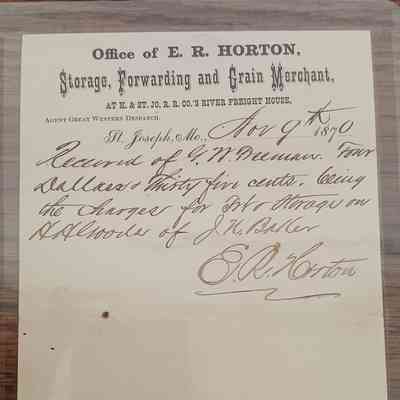 Office of E. R. HORTON,
Storage, Forwarding and Grain Merchant,
AT H. & ST. JO. R. R. CO.'S RIVER FREIGHT HOUSE,
AGENT GREAT WESTERN DESPATCH.
St. Joseph, Mo., Nov 9th 1870
Received of Four
Dollars & Thirty five cents. being
the charges for & Storage on
of J. H. Baker
E. R. Horton